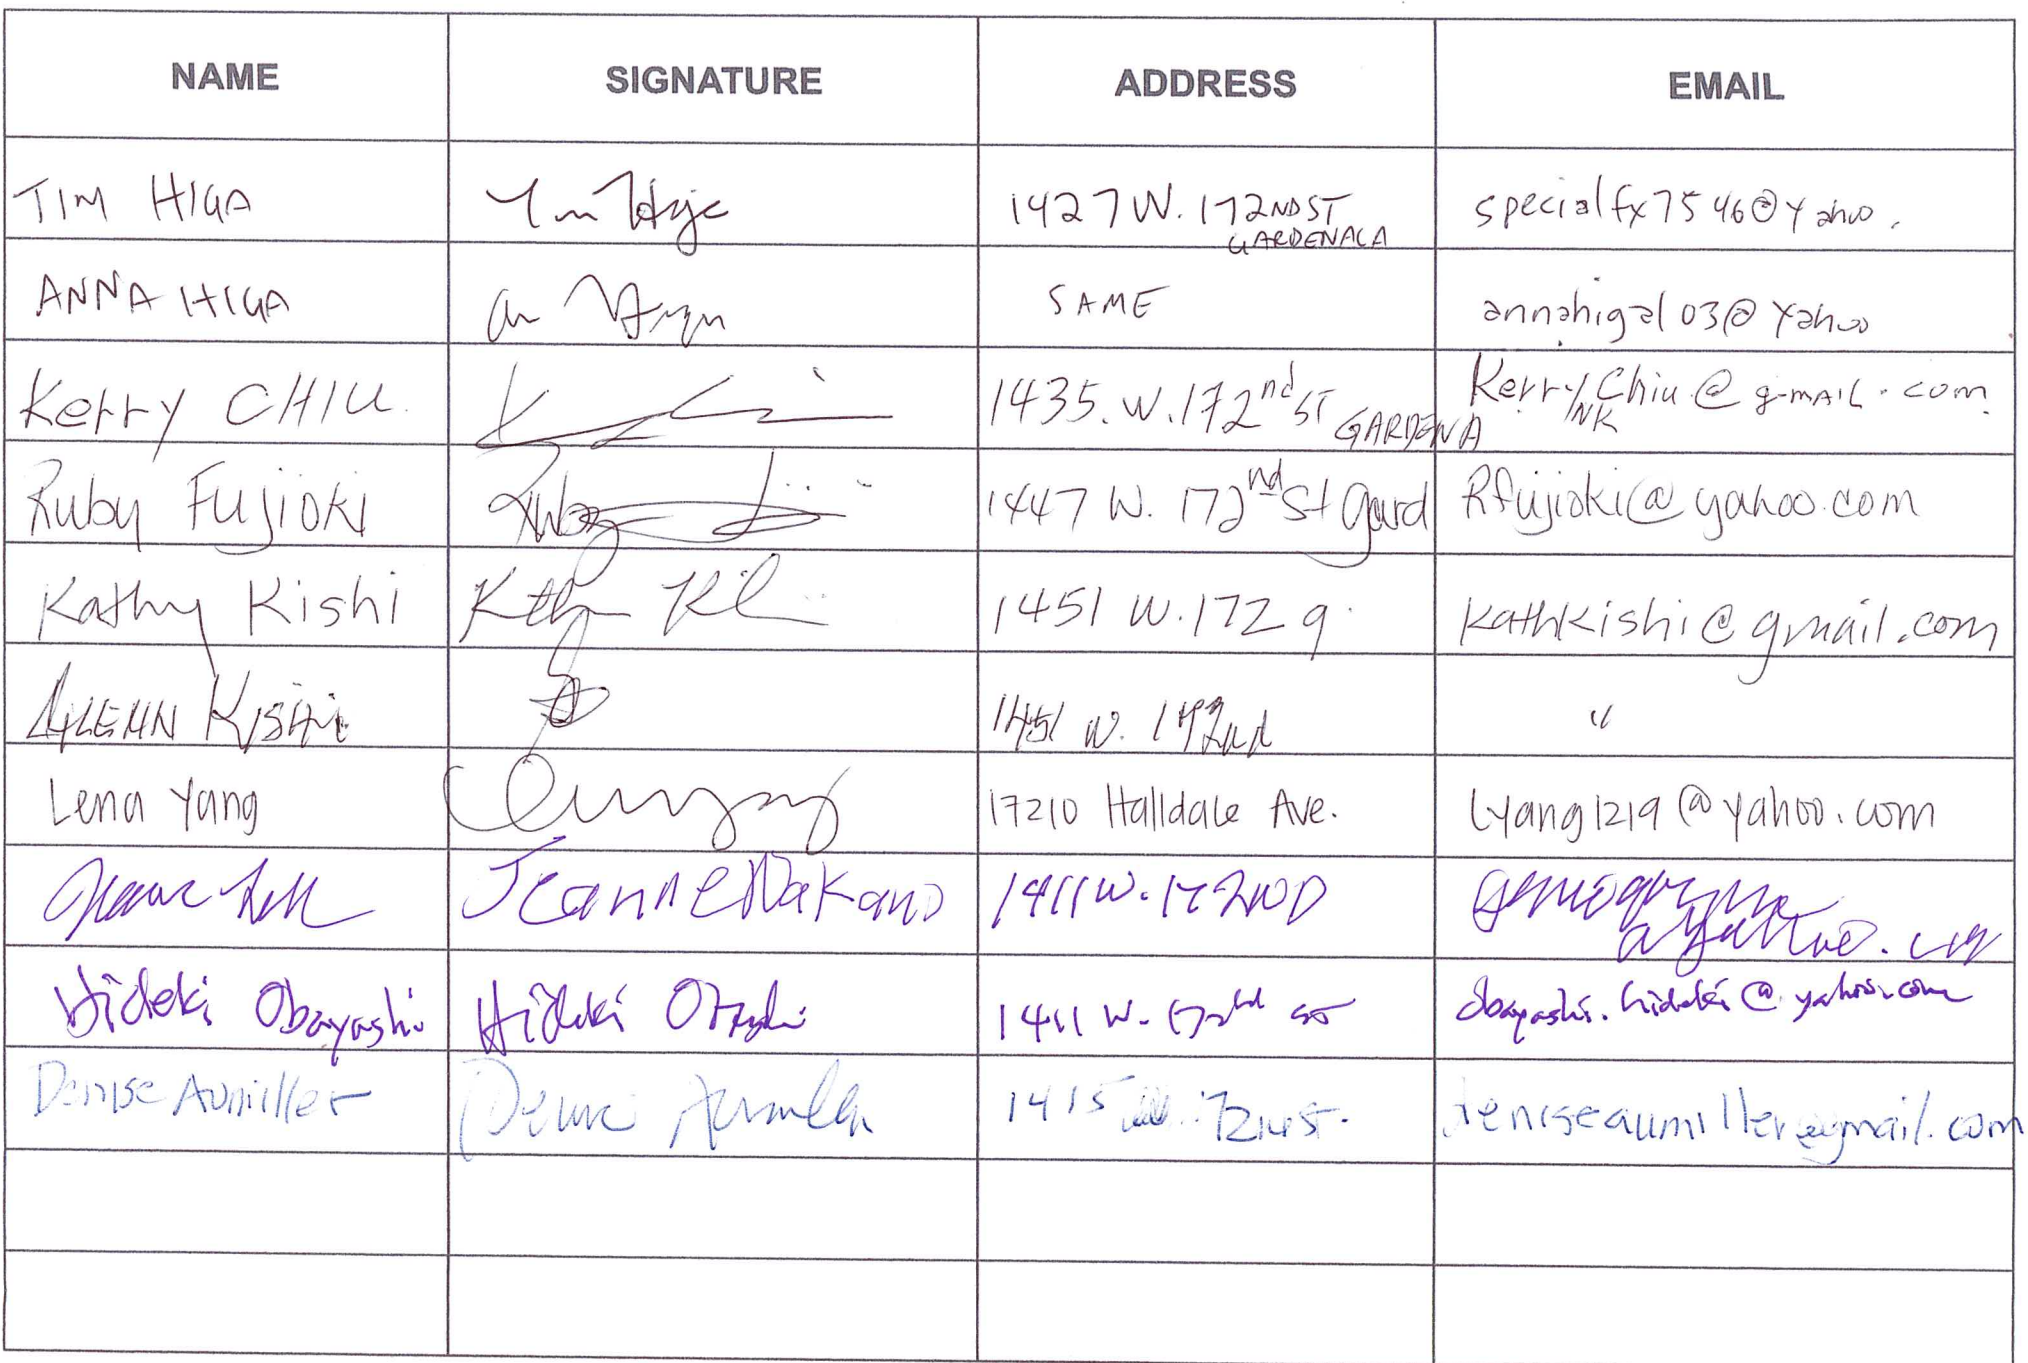 NAME SIGNATURE ADDRESS EMAIL
TIM HIGA 1427 W. 172ND ST specialfx7546@yahoo.
GARDENA CA
ANNA HIGA SAME annahiga103@yahoo
Kerry CHIU 1435. W. 172nd ST GARDENA Kerry Chiu @ g-mail.com
NK
Ruby Fujioki Ruby 1447 W. 172nd St Gard Rfujioki@yahoo.com
Kathy Kishi 1451 W. 172 g. kathkishi@gmail.com
GLENN KISHI 1451 W. 172nd "
Lena Yang 17210 Halldale Ave. lyang1219@yahoo.com
Jeanne Nakano 1411 W. 172ND
Hideki Obayashi Hideki 1411 W. 172nd ST obayashi.hideki@yahoo.com
Denise Aumiller Denise Aumiller 1415 W. 172nd ST. deniseaumiller@gmail.com